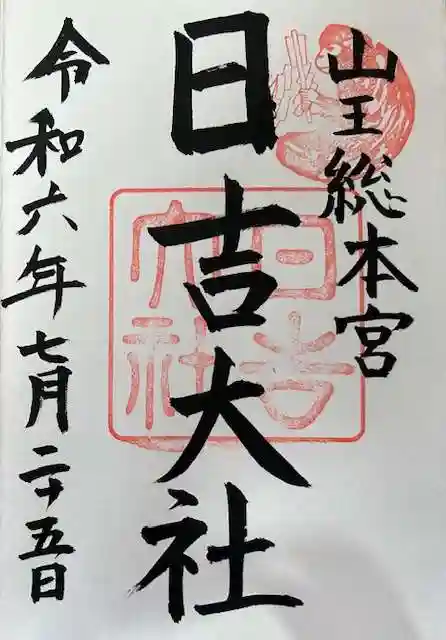 山王総本宮
日吉大社
日吉
大社
令和六年七月二十五日